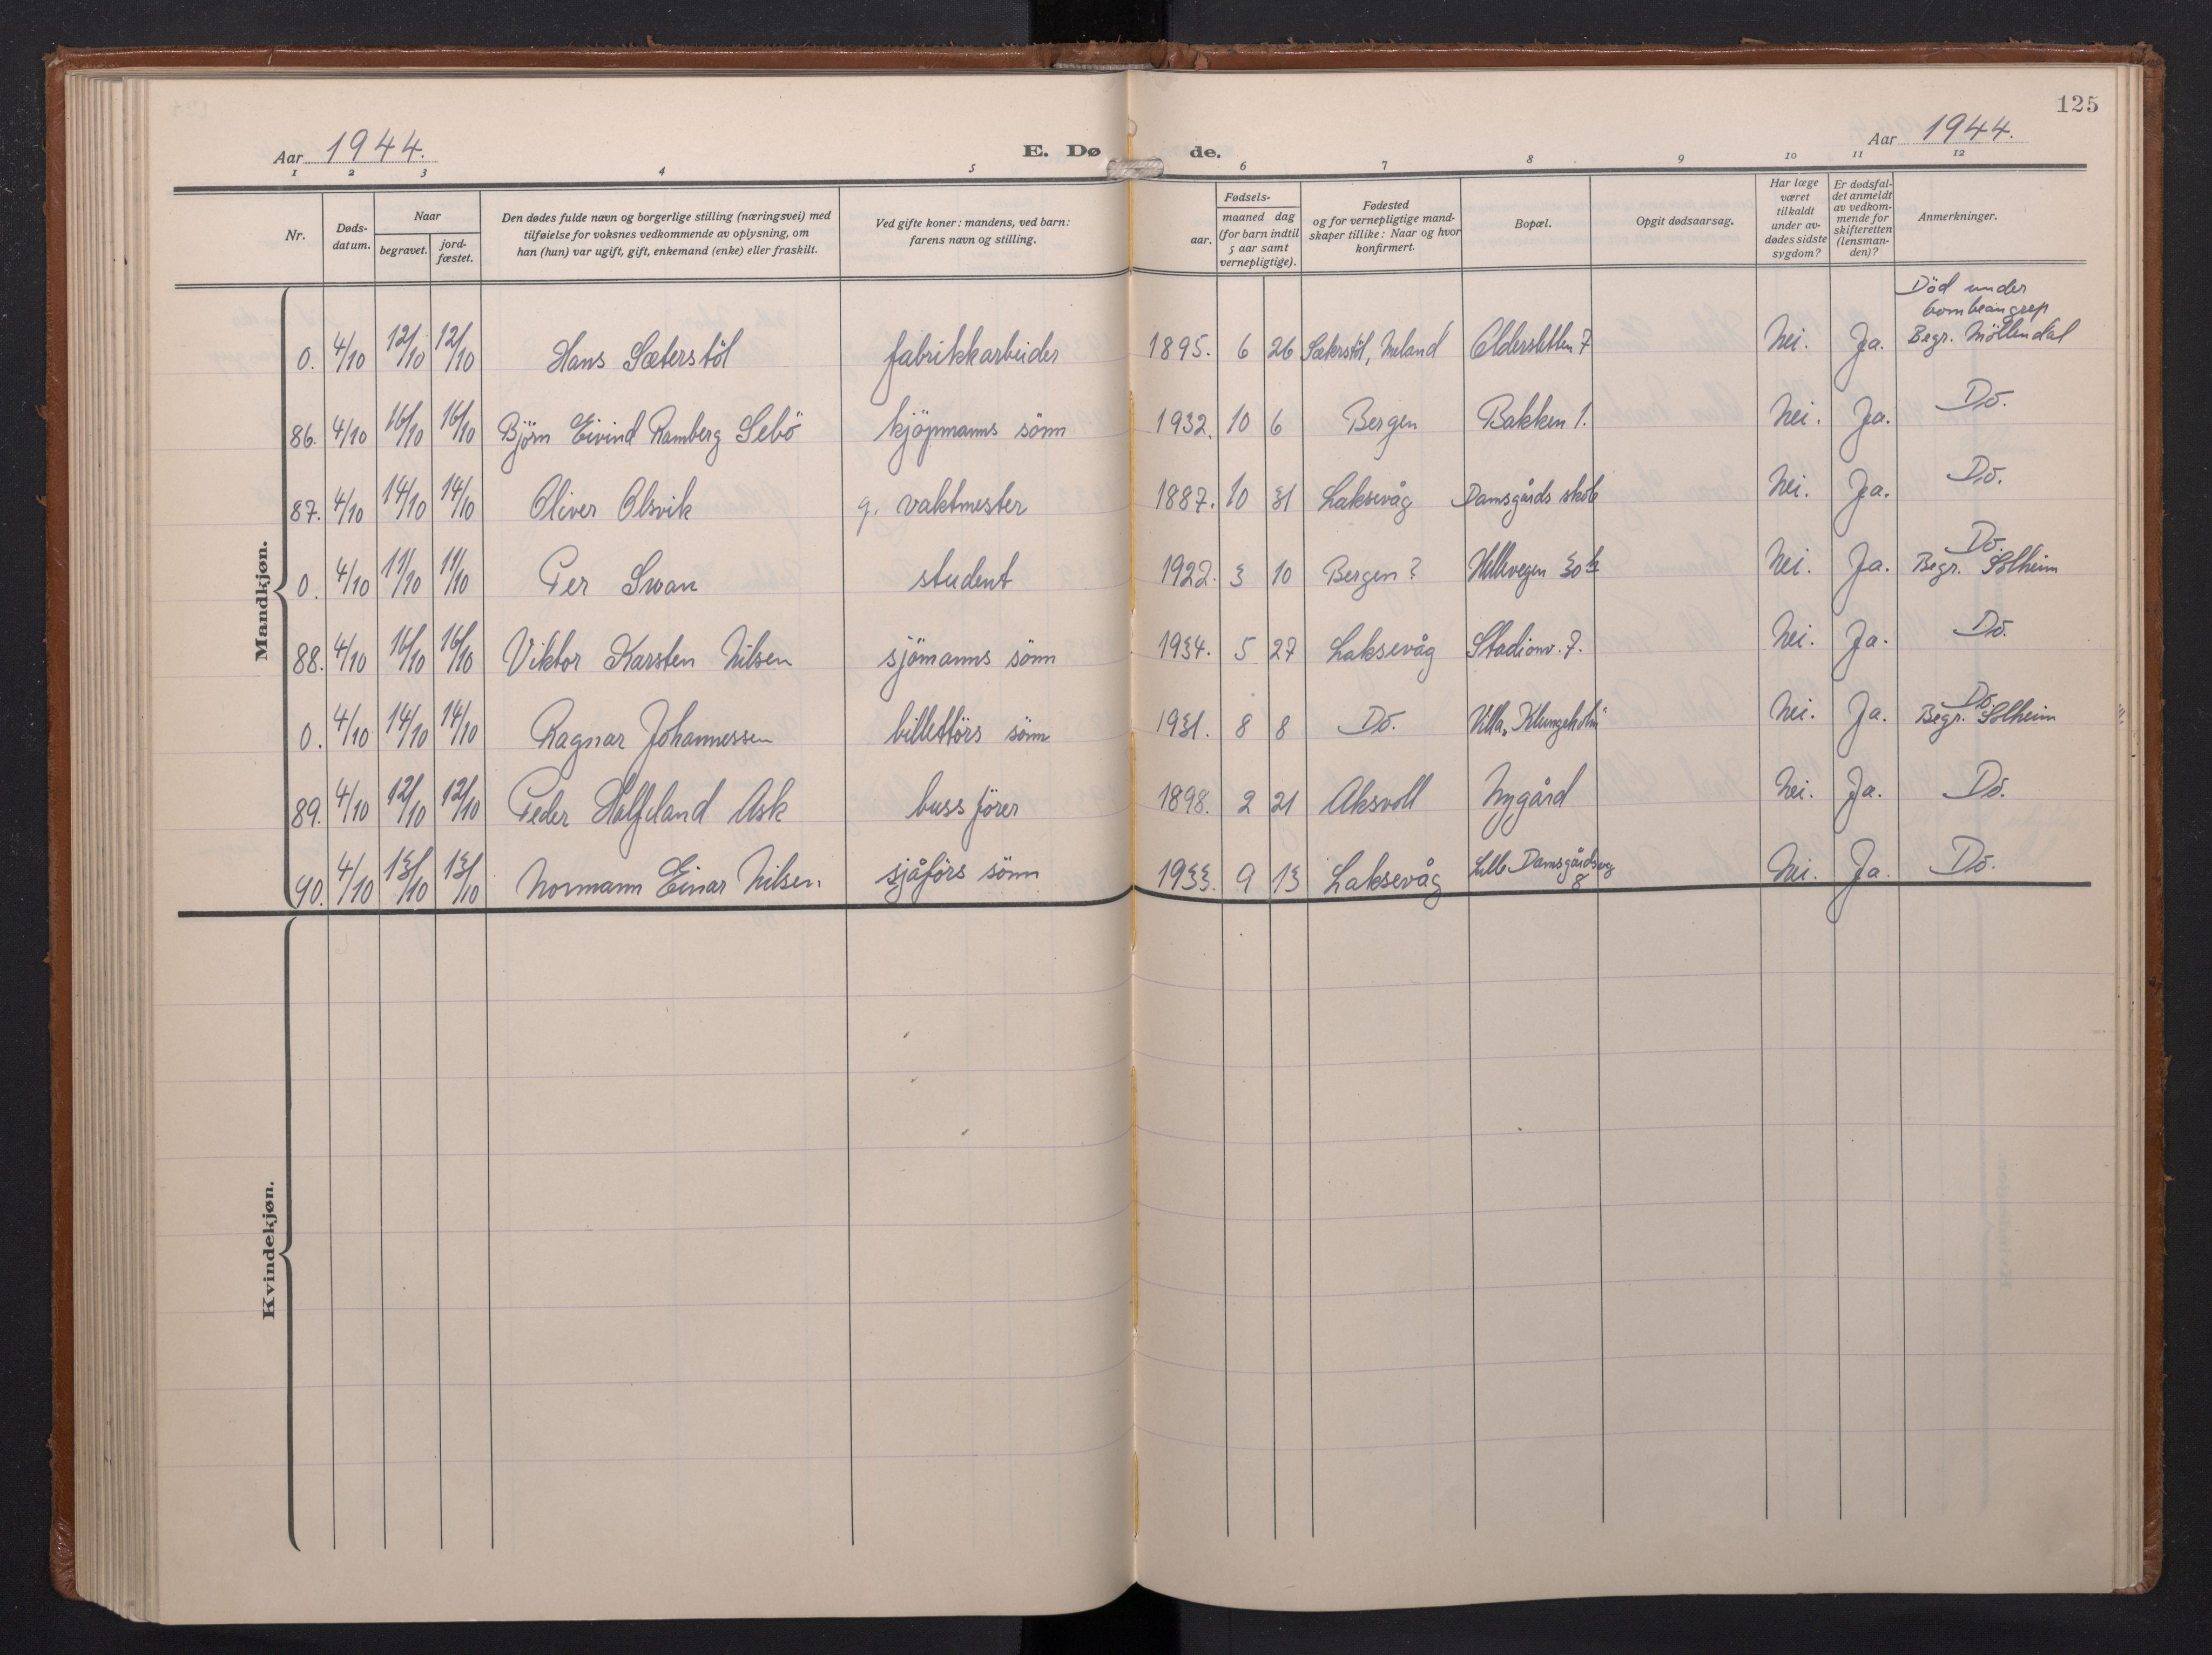 125
Aar 1944.
E. Døde.
Aar 1944.
1 2 3 4 5 6 7 8 9 10 11 12
Nr.
Døds-
datum.
Naar
begravet.
jord-
fæstet.
Den dødes fulde navn og borgerlige stilling (næringsvei) med
tilføielse for voksnes vedkommende av oplysning, om
han (hun) var ugift, gift, enkemand (enke) eller fraskilt.
Ved gifte koner: mandens, ved barn:
farens navn og stilling.
Fødsels-
aar.
maaned dag
(for barn indtil
5 aar samt
vernepligtige).
Fødested
og for vernepligtige mand-
skaper tillike: Naar og hvor
konfirmert.
Bopæl.
Opgit dødsaarsag.
Har læge
været
tilkaldt
under av-
dødes sidste
sygdom?
Er dødsfal-
det anmeldt
av vedkom-
mende for
skifteretten
(lensman-
den)?
Anmerkninger.
Mandkjøn.
Död under
bombeangrep
0. 4/10 12/10 12/10 Hans Sæterstöl fabrikkarbeider 1895. 6 26 Sæterstöl, Meland Aldersletten 7 Nei. Ja. Begr. Möllendal
86. 4/10 16/10 16/10 Björn Eivind Ramberg Sebö kjöpmanns sönn 1932. 10 6 Bergen Bakken 1. Nei. Ja. Do.
87. 4/10 14/10 14/10 Oliver Olsvik g. vaktmester 1887. 10 31 Laksevåg Damsgårds skole Nei. Ja. Do.
0. 4/10 11/10 11/10 Per Swan student 1922. 3 10 Bergen? 30 Nei. Ja. Do. Begr. Solheim
88. 4/10 16/10 16/10 Viktor Karsten Nilsen sjömanns sönn 1934. 5 27 Laksevåg Stadionv. 7. Nei. Ja. Do.
0. 4/10 14/10 14/10 Ragnar Johannessen billettörs sönn 1931. 8 8 Do. Villa „Klungeholm" Nei. Ja. Do. Begr. Solheim
89. 4/10 12/10 12/10 Peder Ask buss förer 1898. 2 21 Aksvoll Nygård Nei. Ja. Do.
90. 4/10 13/10 13/10 Normann Einar Nilsen sjåförs sönn 1933. 9 13 Laksevåg Lille Damsgårdsveg 8 Nei. Ja. Do.
Kvindekjøn.